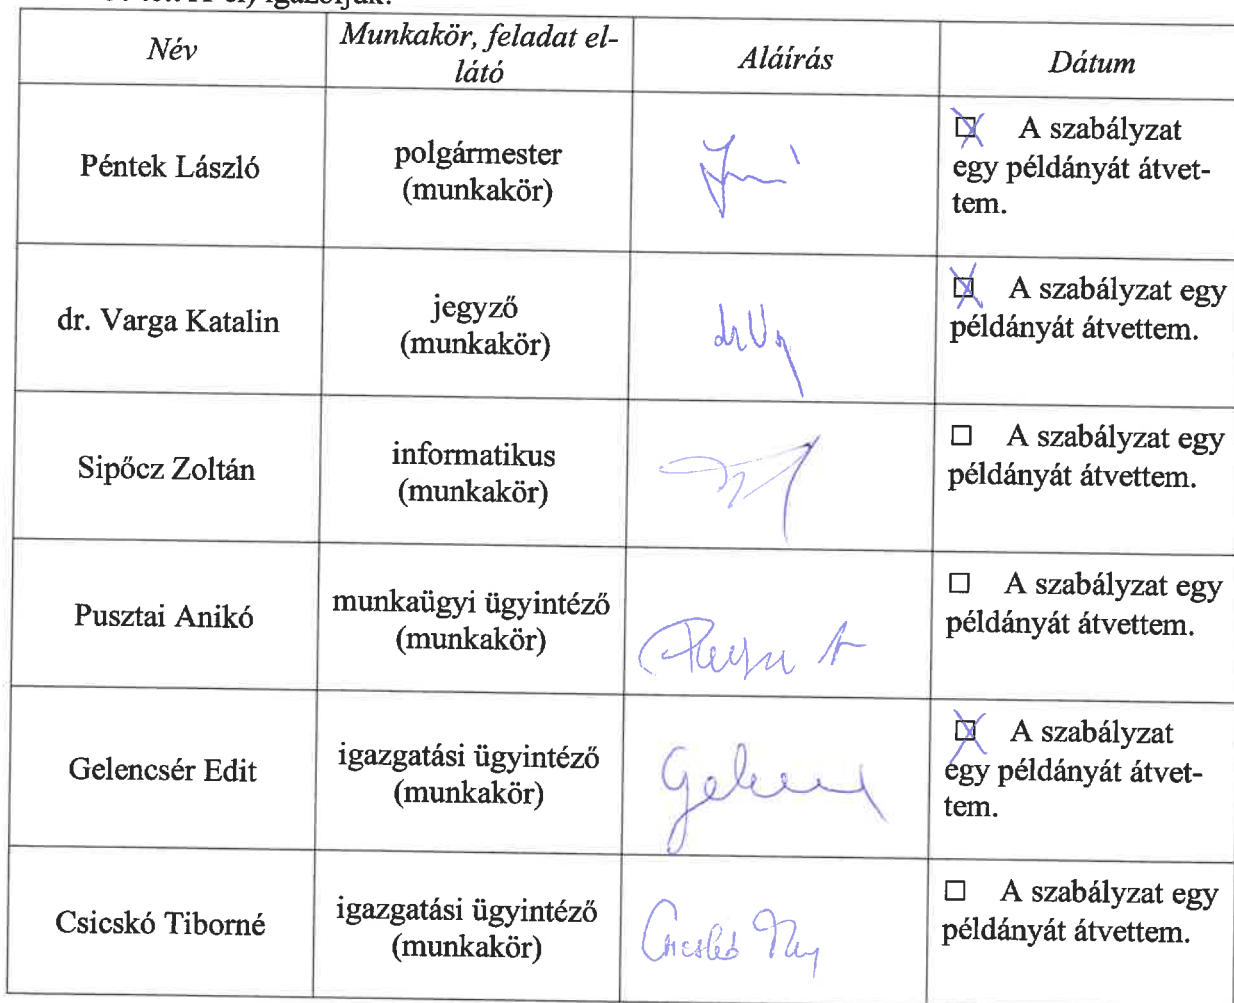 igazoljuk.
Név
Munkakör, feladat el-
látó
Aláírás
Dátum
Péntek László
polgármester
(munkakör)
☒ A szabályzat
egy példányát átvet-
tem.
dr. Varga Katalin
jegyző
(munkakör)
☒ A szabályzat egy
példányát átvettem.
Sipőcz Zoltán
informatikus
(munkakör)
☐ A szabályzat egy
példányát átvettem.
Pusztai Anikó
munkaügyi ügyintéző
(munkakör)
☐ A szabályzat egy
példányát átvettem.
Gelencsér Edit
igazgatási ügyintéző
(munkakör)
☒ A szabályzat
egy példányát átvet-
tem.
Csicskó Tiborné
igazgatási ügyintéző
(munkakör)
☐ A szabályzat egy
példányát átvettem.